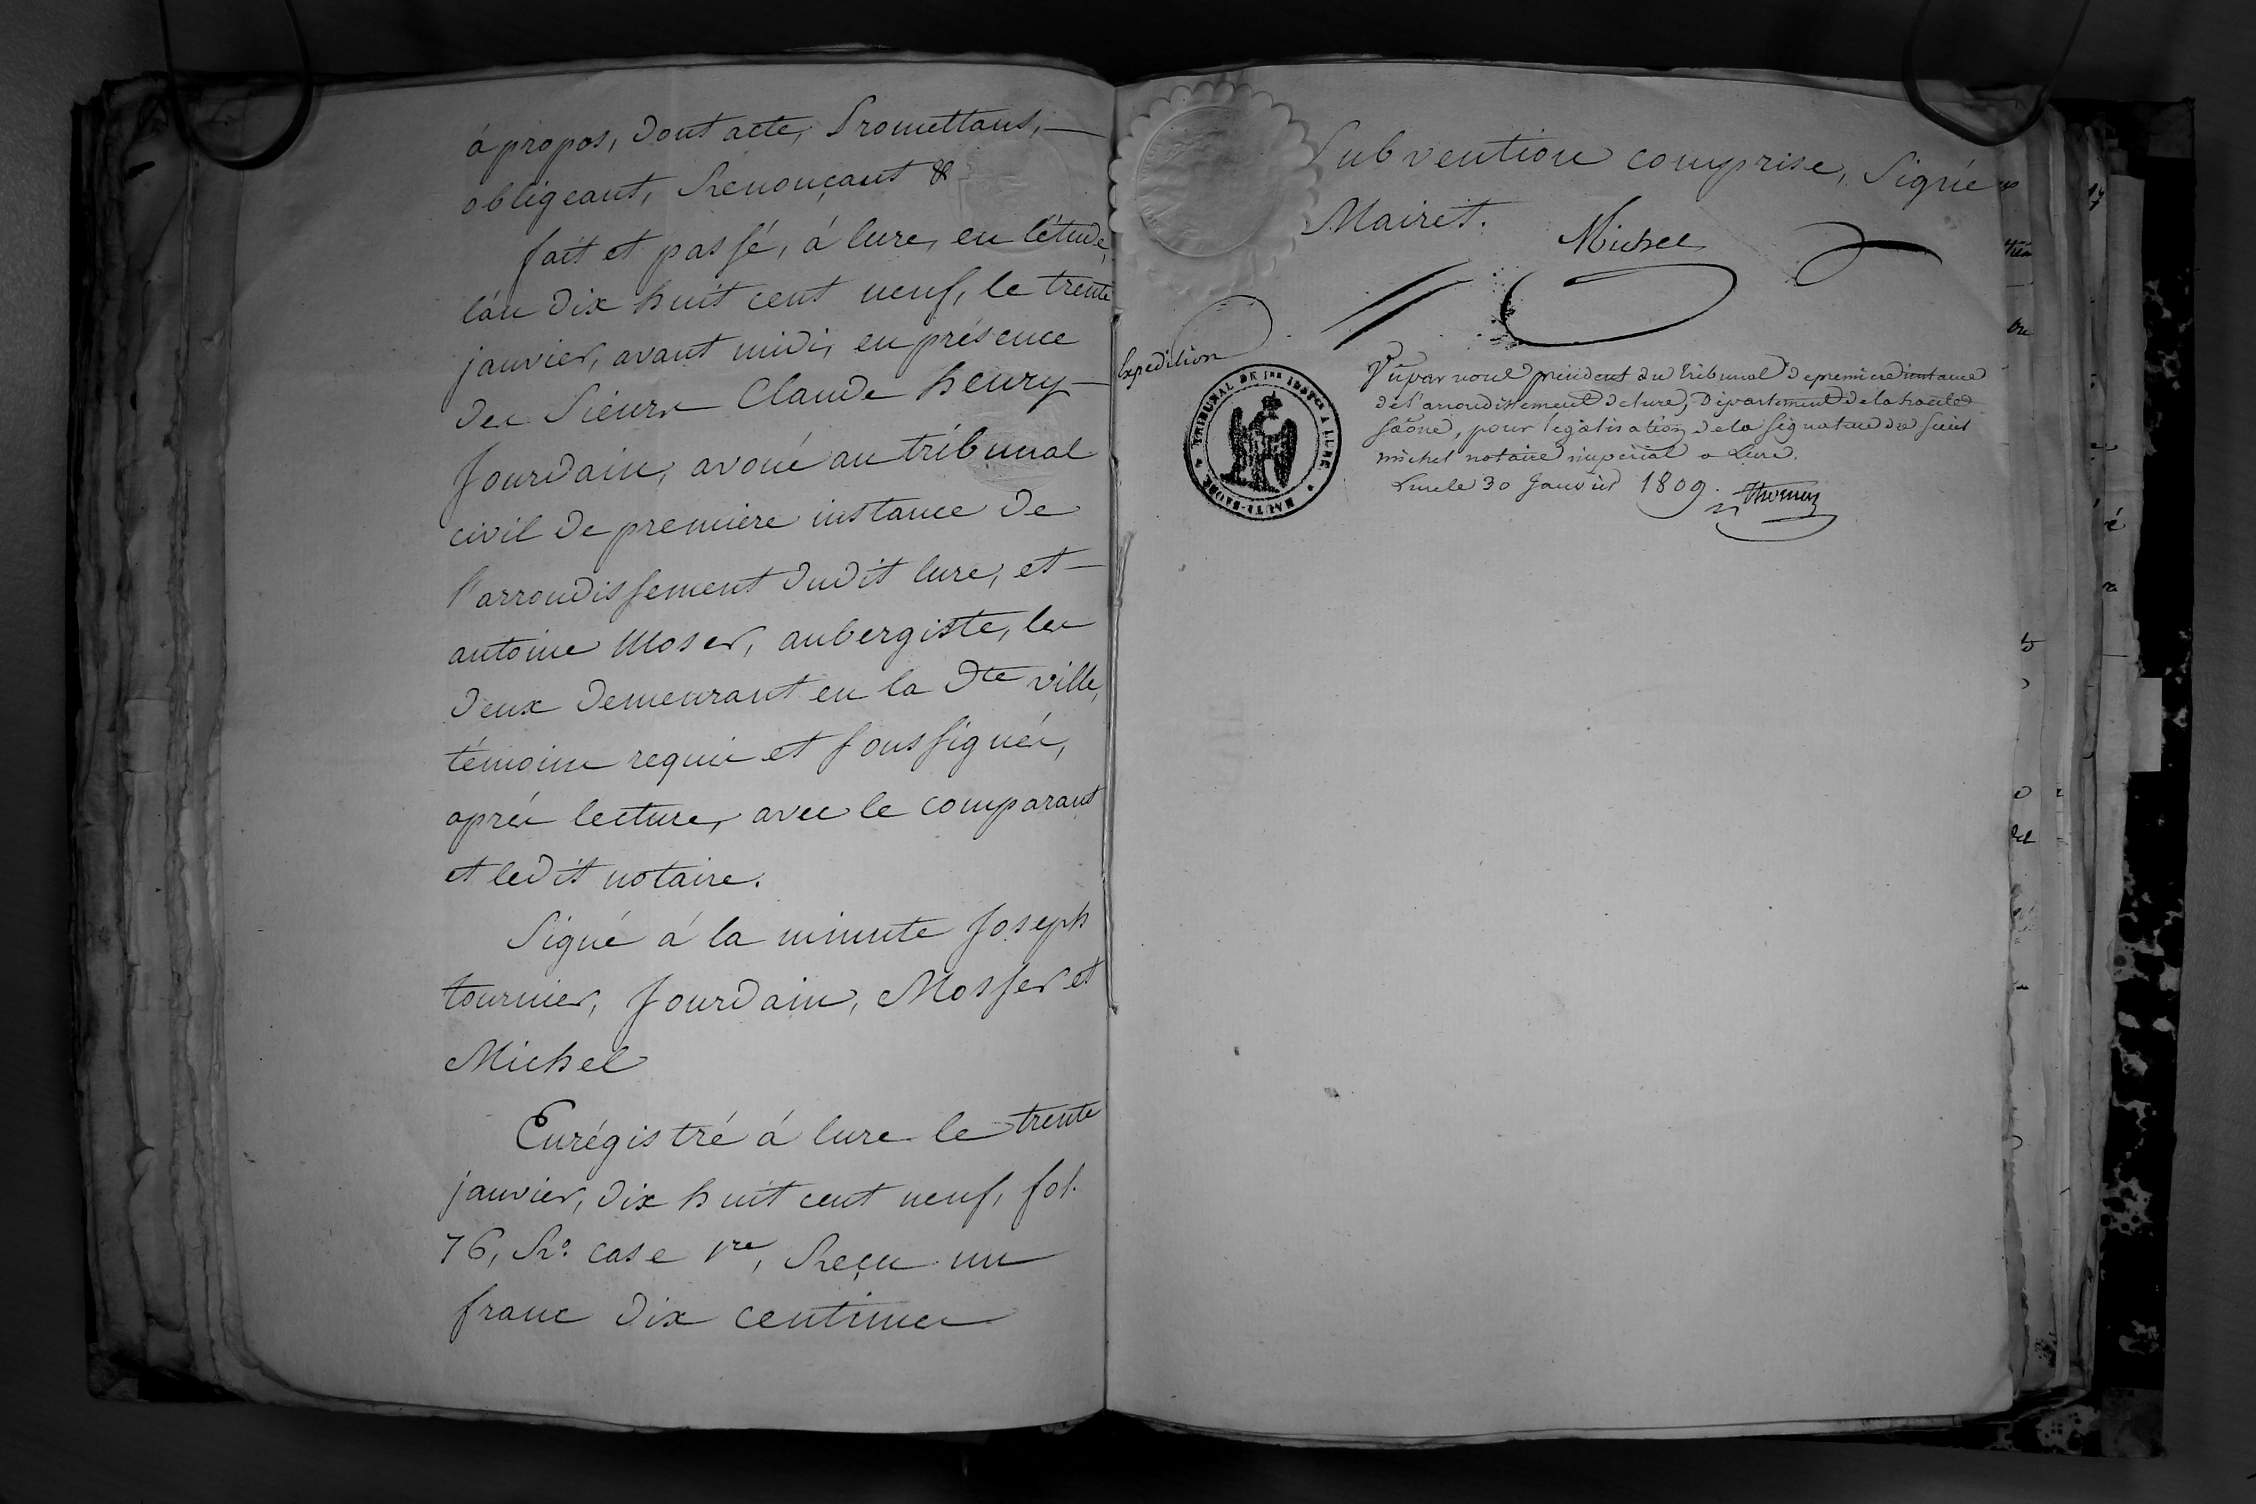 à propos, dont acte, Promettant,
obligeant, Renonçant &
fait et passé, à lure, en l'étude,
l'an dix huit cent neuf, le trente
janvier, avant midi, en présence
des Sieurs Claude henry
Jourdain, avoué au tribunal
civil de première instance de
l'arrondissement dudit lure, et
antoine Moser, aubergiste, les
deux demeurant en la dte ville,
témoins requis et soussignés,
après lecture, avec le comparant
et ledit notaire.
Signé à la minute Joseph
tournier, Jourdain, Mosser et
Michel
Enrégistré à lure le trente
janvier, dix huit cent neuf, fol.
76, Ro. case 1re, Reçu un
franc dix centimes
Subvention comprise, Signé
Mairet.
Michel
Expedition
TRIBUNAL DE 1re INSTce A LURE
HAUTE-SAONE
Vu par nous président du tribunal de premiere instance
de l'arrondissement de lure, Département de la haute
Saône, pour legalisation de la signature du sieur
michel notaire impérial a Lure.
Lure le 30 Janvier 1809.